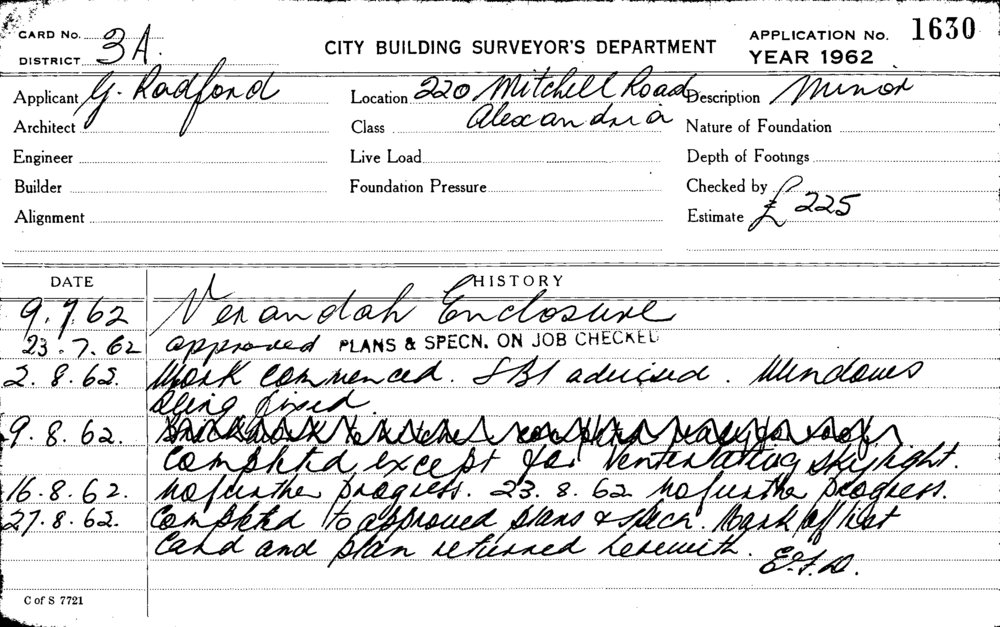 CARD No. 3A.
DISTRICT
CITY BUILDING SURVEYOR'S DEPARTMENT
APPLICATION No. 1630
YEAR 1962
Applicant G. Radford
Location 220 Mitchell Road
Alexandria
Description Minor
Architect
Class
Nature of Foundation
Engineer
Live Load
Depth of Footings
Builder
Foundation Pressure
Checked by
Alignment
Estimate £ 225
DATE
HISTORY
9.7.62 Verandah Enclosure
23.7.62 approved PLANS & SPECN. ON JOB CHECKED
2.8.62. Work commenced. SBI advised. Windows
being fixed.
9.8.62. Brickwork to kitchen completed ready for roof
Completed except for Venterlating skylight.
16.8.62. No further progress. 23.8.62 No further progress.
27.8.62. Completed to approved plans & specn. Mark off list
Card and plan returned herewith.
E.F.D.
C of S 7721